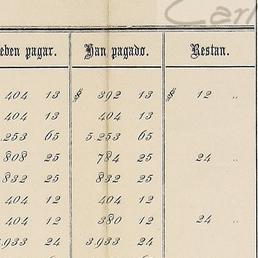 Carl
eben pagar. Han pagado. Restan.
404 13 $ 392 13 $ 12 ..
404 13 404 13
.253 65 5.253 65
808 25 784 25 24 ..
832 25 832 25
404 12 404 12
404 12 380 12 24 ..
3.933 24 3.933 24